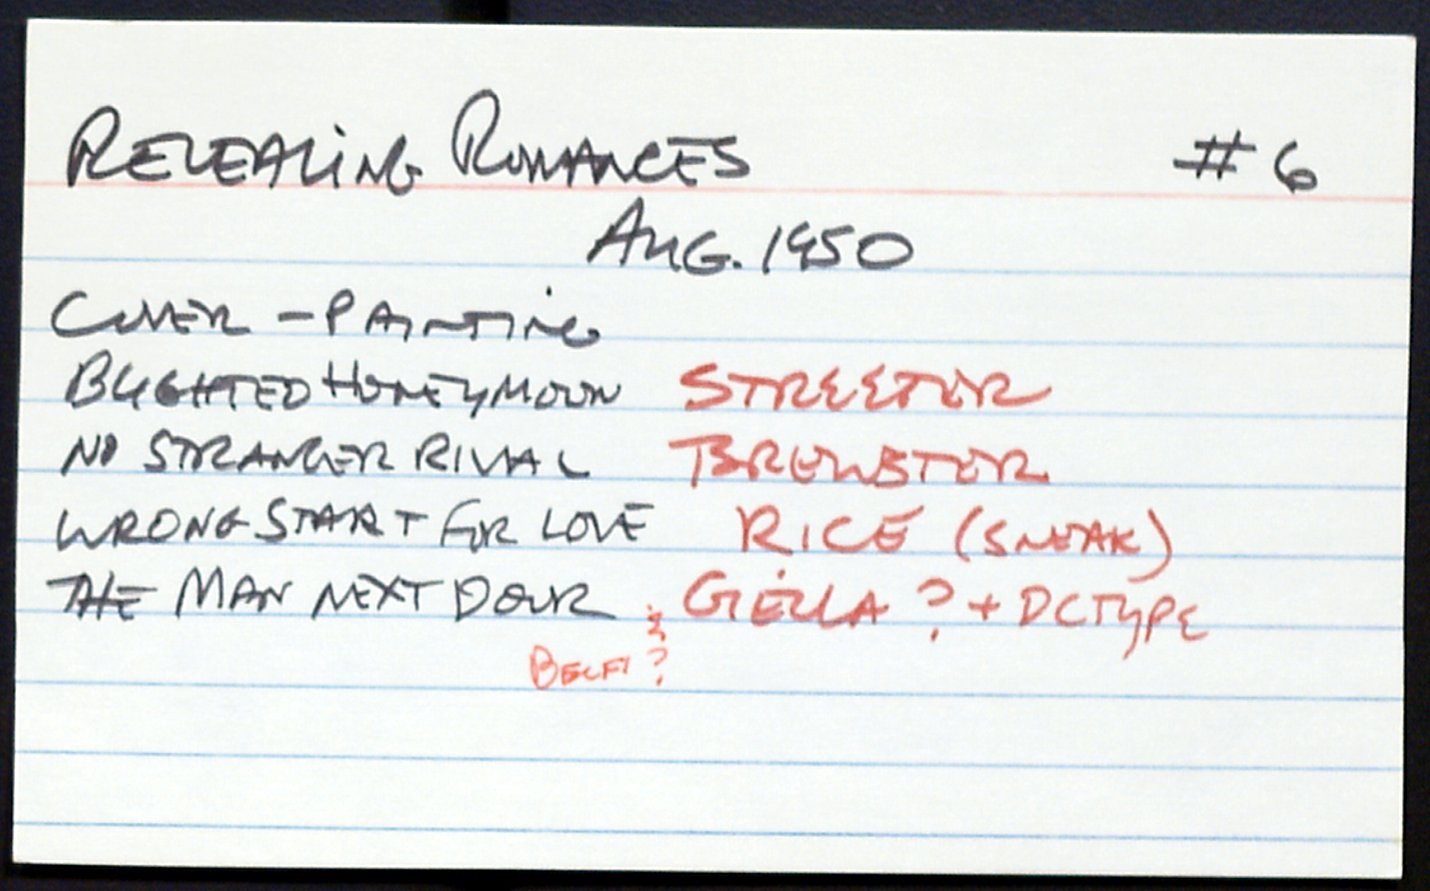 REVEALING ROMANCES #6
AUG. 1950
COVER - PAINTING
BLIGHTED HONEYMOON STREETER
NO STRANGER RIVAL BREWSTER
WRONG START FOR LOVE RICE (SNEAK)
THE MAN NEXT DOOR GIELLA ? + DC TYPE
& BELFI ?